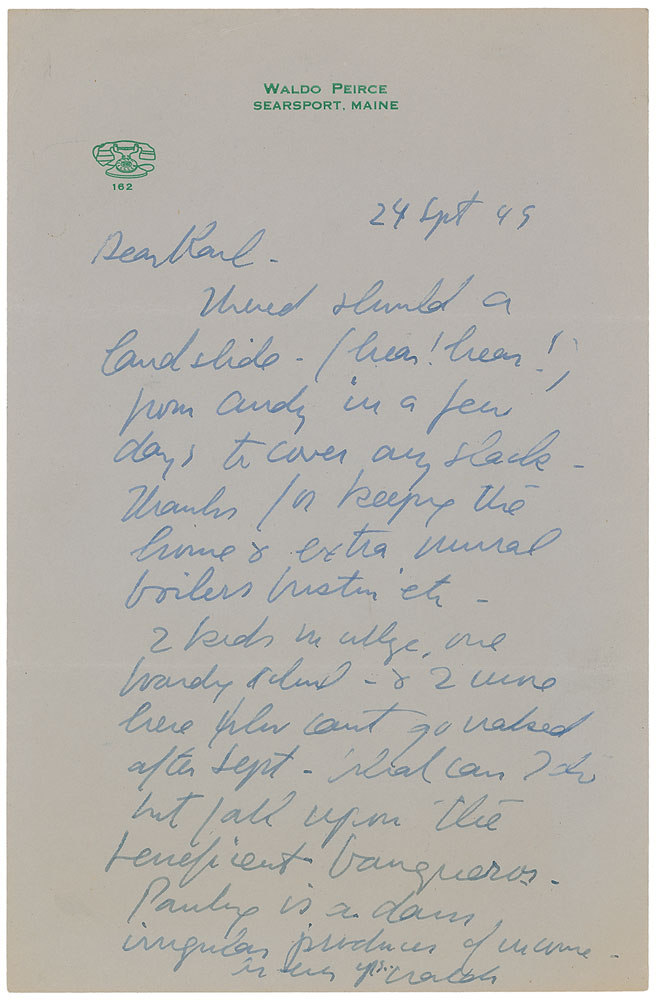 WALDO PEIRCE
SEARSPORT, MAINE
162
24 Sept 49
Dear Karl -
There should a
landslide - (hear! hear!)
from Andy in a few
days to cover any slack -
Thanks for keeping the
home & extra mural
boilers bustin etc -
2 kids in college, one
boarding school - & 2 more
here who cant go naked
after Sept - What can I do
but fall upon the
beneficent banqueros -
Painting is a damn
irregular producer of income -
as ever yrs. Waldo